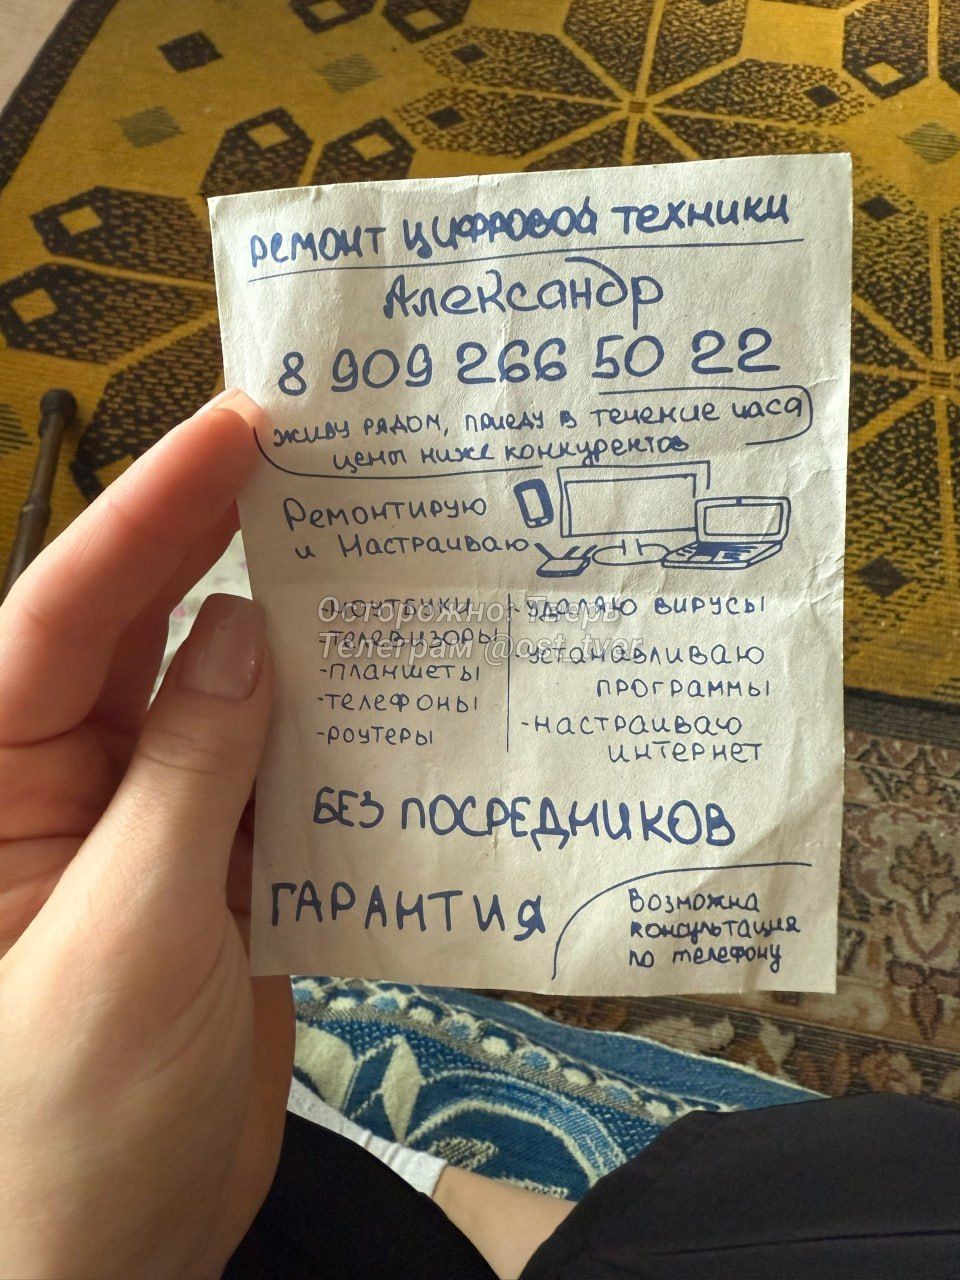 РЕМОНТ ЦИФРОВОЙ ТЕХНИКИ
Александр
8 909 266 50 22
живу рядом, приеду в течение часа
цены ниже конкурентов
Ремонтирую
и Настраиваю
-ноутбуки
-телевизоры
-планшеты
-телефоны
-роутеры
-удаляю вирусы
-устанавливаю
программы
-настраиваю
интернет
Осторожно, Тверь
Телеграм @ost_tver
БЕЗ ПОСРЕДНИКОВ
ГАРАНТИЯ
Возможна
консультация
по телефону